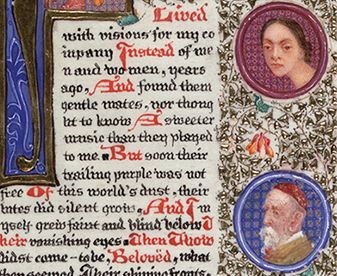 Lived
with visions for my co
mpany Instead of me
n and women, years
ago, And found them
gentle mates, nor thou
ht to know A sweeter
music than they played
to me. But soon their
trailing purple was not
free Of this world's dust, their
lutes did silent grow, And I m
yself grew faint and blind below T
heir vanishing eyes. Then Thou
didst come-to be, Belovèd, what
they seemed. Their shining fronts,